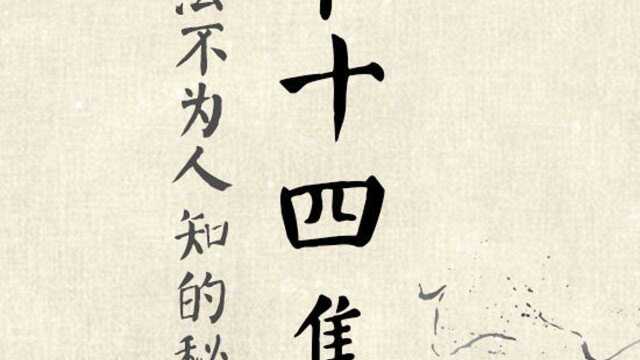 十四集
法不为人知的秘